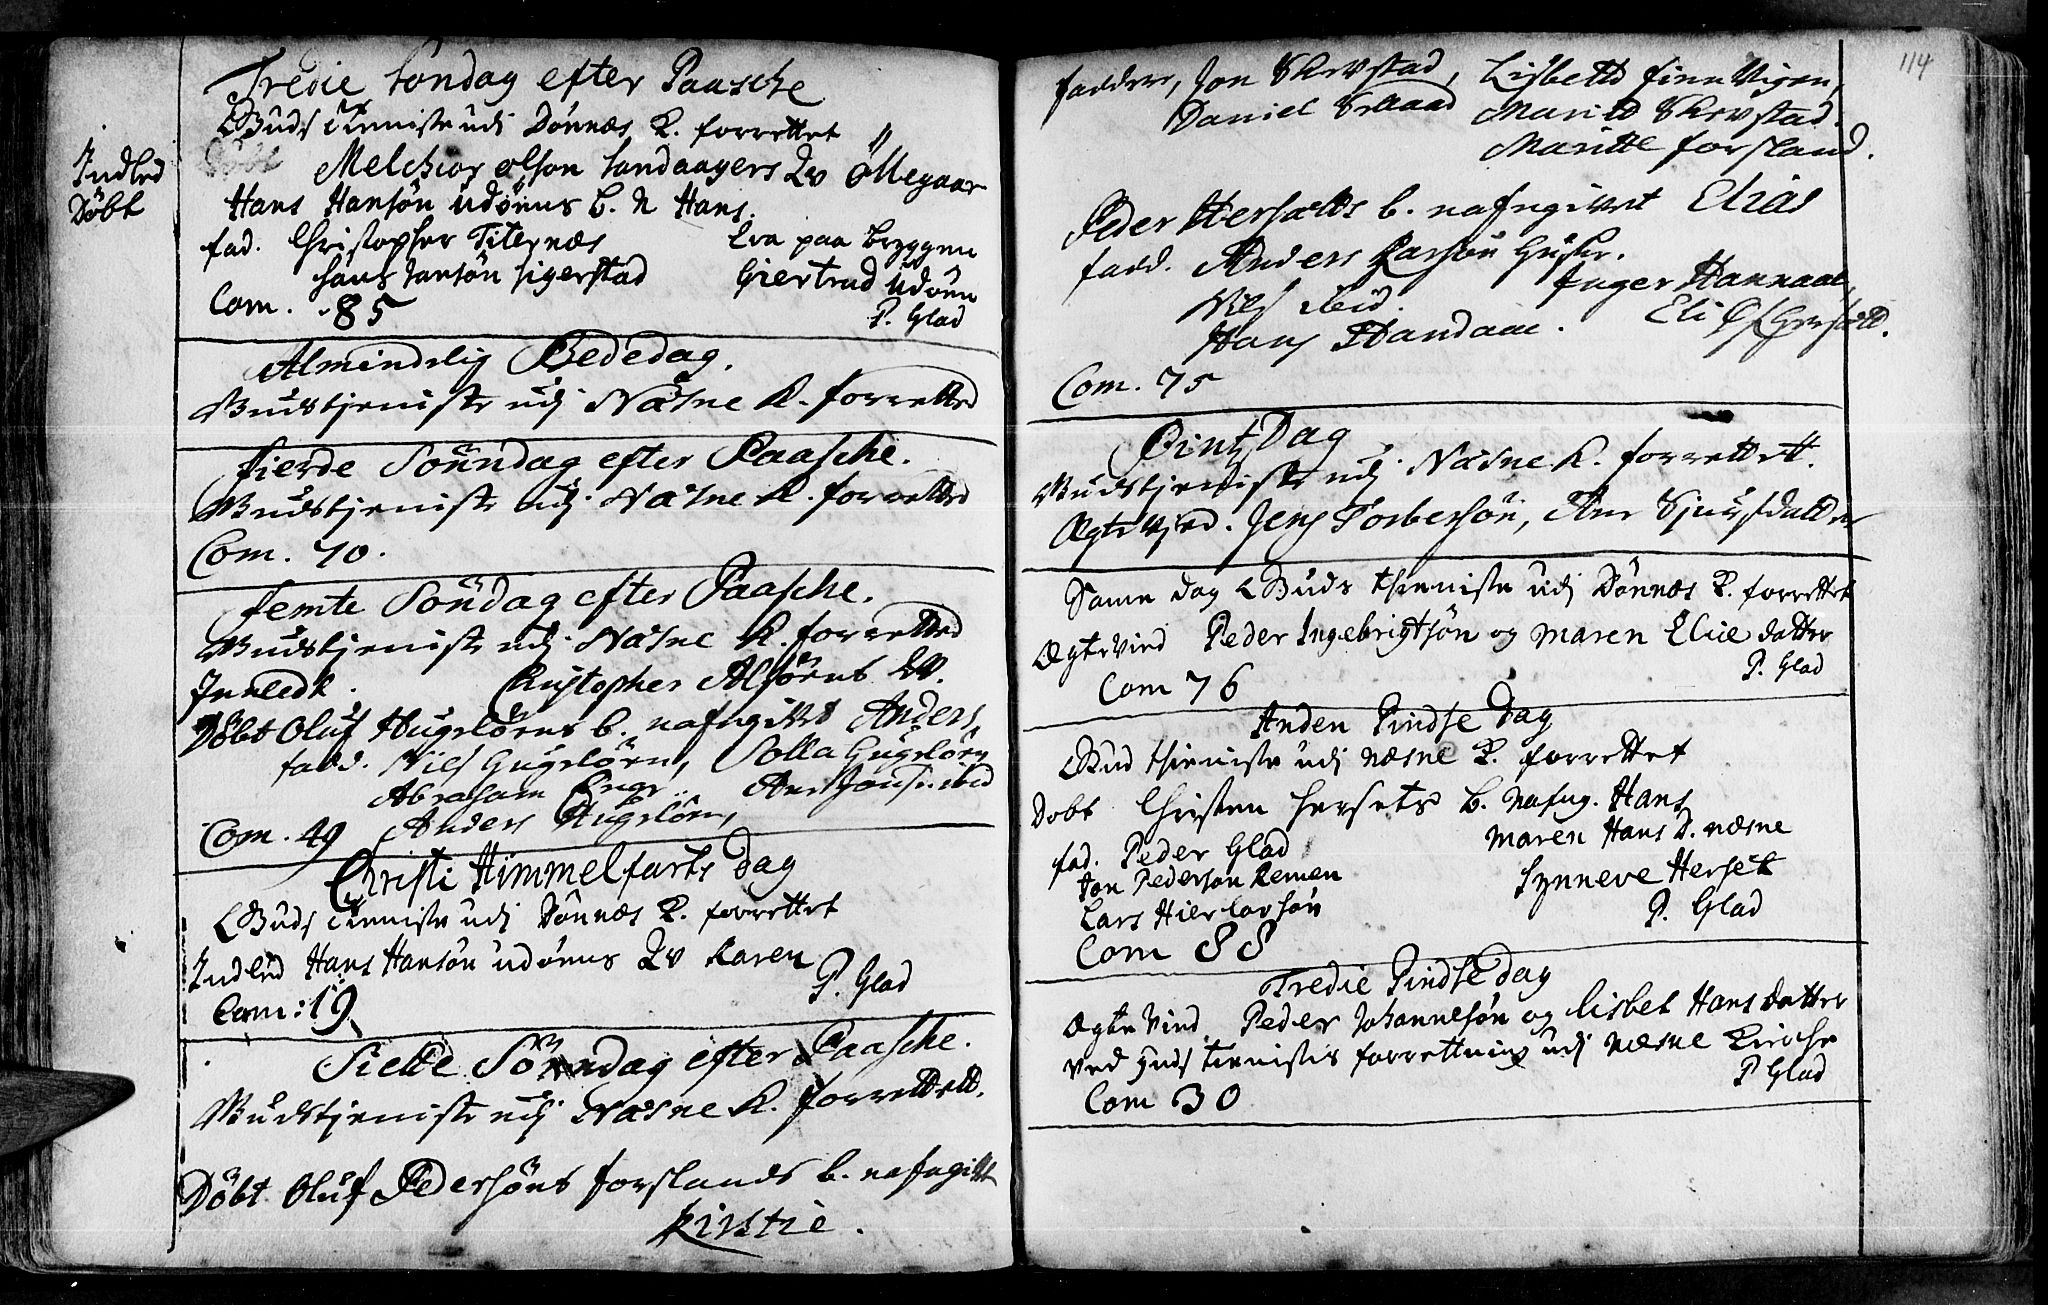 Tredie Søndag efter Paasche
Guds Tieniste udj Dönnæs K. forrettet
Indled Melchior Olson Sandaagers Qv
Döbt Hans Hansön Udöens b. N Hans.
fad. Christopher Titernæs Eva paa Bryggen
Hans Jansön Sigerstad Giertrud Udöen
Com. 85 P. Glad
Almindelig Bededag.
Gudstjeniste udj Næsne K. forretted
Fierde Sönndag efter Paasche.
Gudstjeniste udj Næsne K. forretted
Com. 70.
Femte Söndag efter Paasche.
Gudstjeniste udj Næsne K. forretted
Innledt. Christopher Alsöens Qv.
Döbt Oluf Hugelöens b. nafngivet Anders,
fadd. Niels Hugelöen, Solla Hugelöen
Abraham Enge Ane Jonsd. ibid
Com. 49 Anders Hugelöen,
Christi Himmelfarts Dag
Guds Tieniste udj Dönnæs K. forrettet
Indled Hans Hansön udöens Qv Karen
Com: 19 P. Glad
Siette Sönndag efter Paasche.
Gudstjeniste udj Næsne K. forrettett.
Döbt Oluf Pedersöns Forslands b. nafngivt
Kirstie.
114
faddere, Jon Skevstad, Lisbeth Finnvigen,
Daniel Marith Skevstad.
Maritte Forsland.
Peder b. nafngivet Elias
fadd. Anders Larsön Huskr. Inger
Nils ibid. Eli
Hans
Com. 75
PintzDag
Gudstjeniste udj Næsne K. forrettett.
Ægtevied. Jens Torbersön, Ane Sjursdatter
Same dag Guds thieniste udj Dönnæs K. forrettet
Ægtevied Peder Ingebrigtsön og Maren Elie datter
Com 76 P. Glad
Anden Pindse Dag
Gud thieniste udj Næsne K. forrettet
Dobt Christen Hersets b. Nafng. Hans
fad. Peder Glad Maren Hans D. Næsne
Jon Pederson Remen Synneve Herset
Lars Hierlorsön P. Glad
Com 88
Tredie Pindse Dag
Ægte Vied Peder Johannesön og Lisbet Hans Datter
ved Guds tienistes forrettning udj Næsne Kirche
Com 30 P Glad